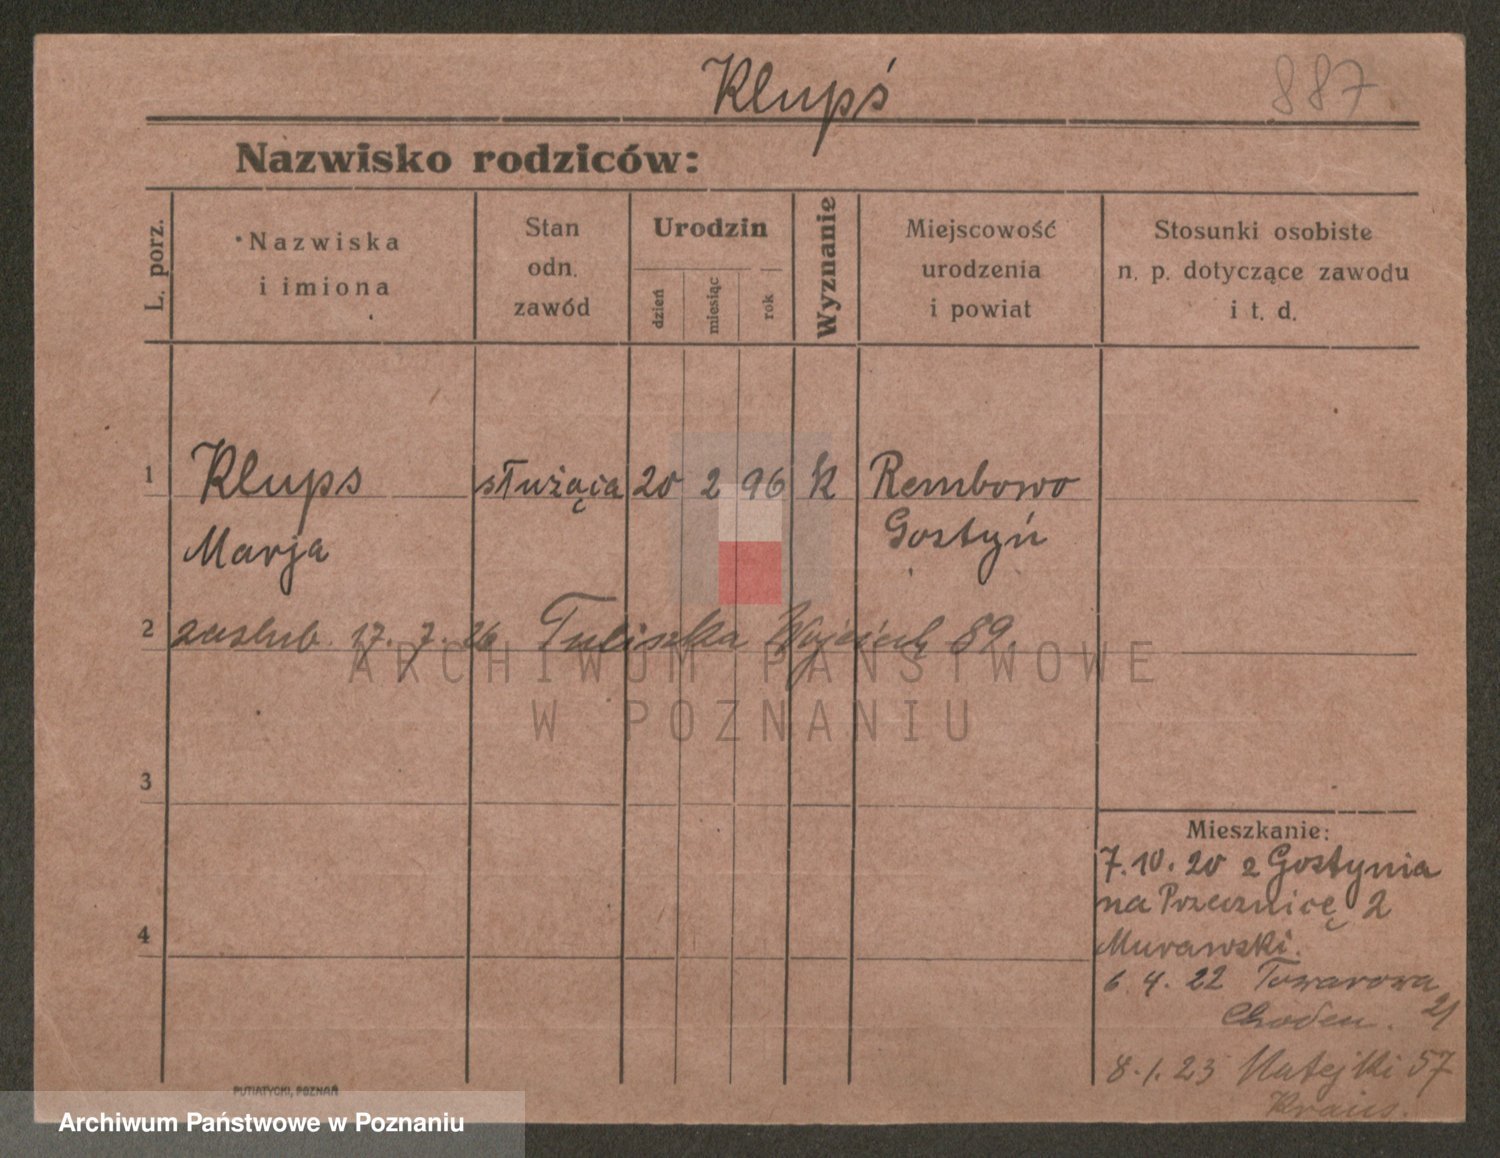 Klupś
887
Nazwisko rodziców:
L. porz.
Nazwiska
i imiona
Stan
odn.
zawód
Urodzin
dzień
miesiąc
rok
Wyznanie
Miejscowość
urodzenia
i powiat
Stosunki osobiste
n. p. dotyczące zawodu
i t. d.
1 Klups służąca 20 2 96 k Rembowo
Marja Gostyń
2 zaslub. 17. 7. 26 Tuliszka Wojciech 89.
ARCHIWUM PAŃSTWOWE
W POZNANIU
3
4
Mieszkanie:
7.10.20 z Gostynia
na Przecznicę 2
Murawski.
6.4.22 Towarowa
21
8.1.23 Matejki 57
Kraus.
PUTIATYCKI, POZNAŃ
Archiwum Państwowe w Poznaniu